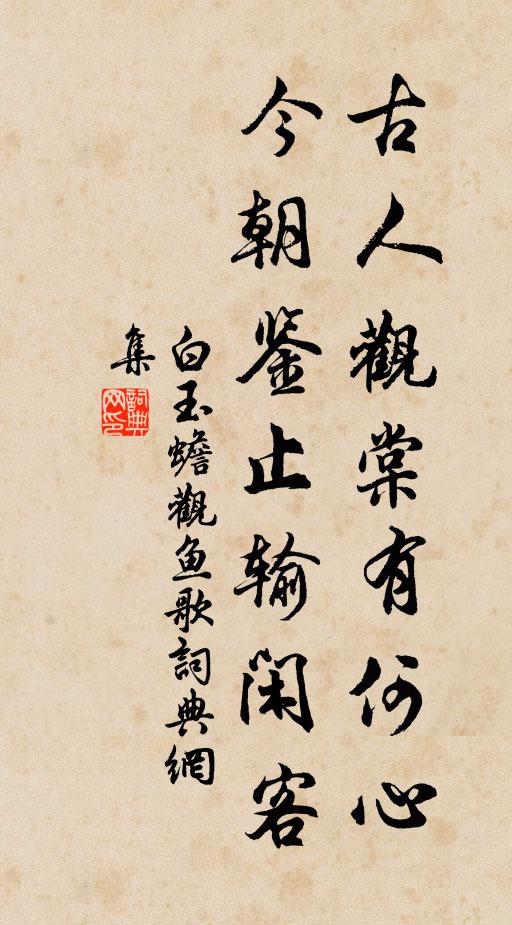 古人觀棠有何心
今朝鉴止输闲客
白玉蟾觀鱼歌詞典網
集
詞典
网印